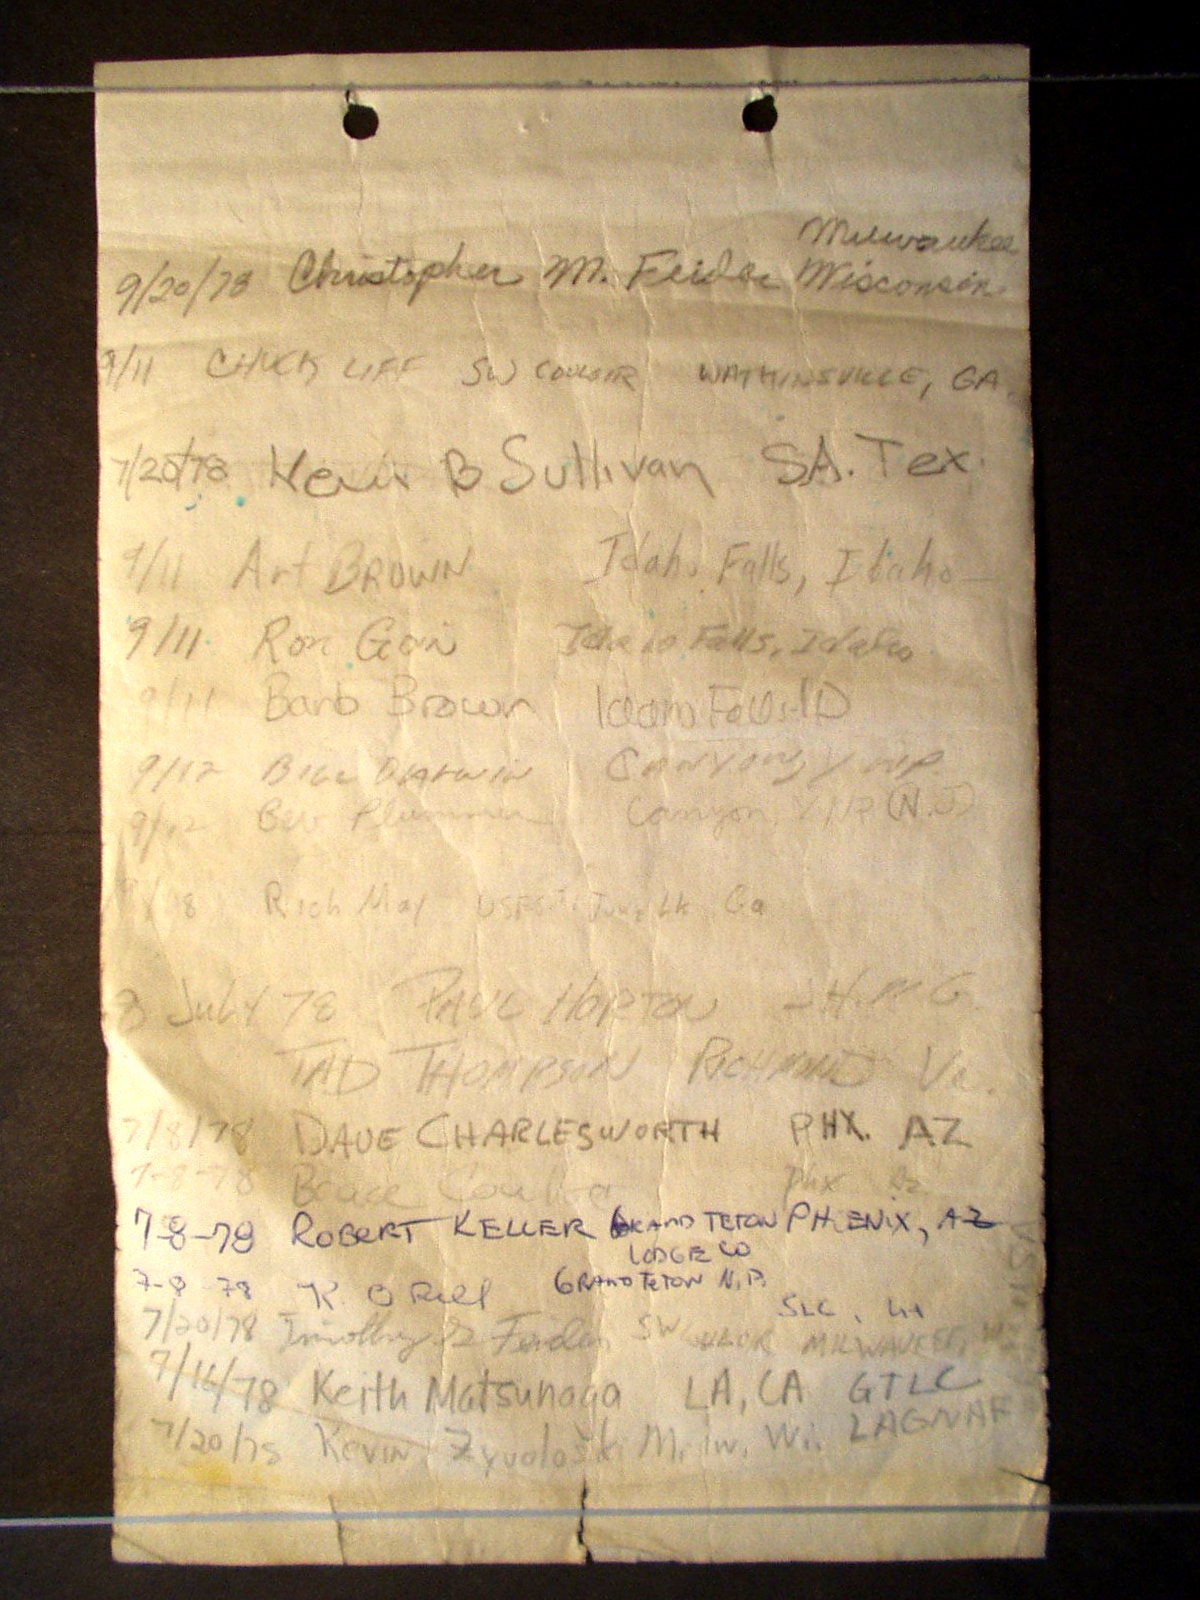 Milwaukee
9/20/78 Christopher M. Feider Wisconsin
9/11 CHUCK LIFF SW COULOIR WATKINSVILLE, GA.
7/20/78 Kevin B Sullivan SA. Tex.
9/11 Art BROWN Idaho Falls, Idaho
9/11 Ron Gain Idaho Falls, Idaho
9/11 Barb Brown Idaho Falls ID
9/12 BILL DARWIN Canyon, YNP
9/12 Bev Plummer Canyon, YNP (N.J)
Rich May USFS Ga
8 July 78 PAUL HORTON J.H.M.G.
TAD THOMPSON RICHMOND Va.
7/8/78 DAVE CHARLESWORTH PHX. AZ
7-8-78 Bruce Phx Az
7-8-78 ROBERT KELLER GRAND TETON PHENIX, AZ
LODGE CO
7-8-78 K. O Rell GRAND TETON N.P.
SLC, UT
7/20/78 Timothy G Feider SW MILWAUKEE,
7/16/78 Keith Matsunaga LA, CA GTLC
7/20/78 Kevin Zyvoloski Milw. Wi. LAGNAF